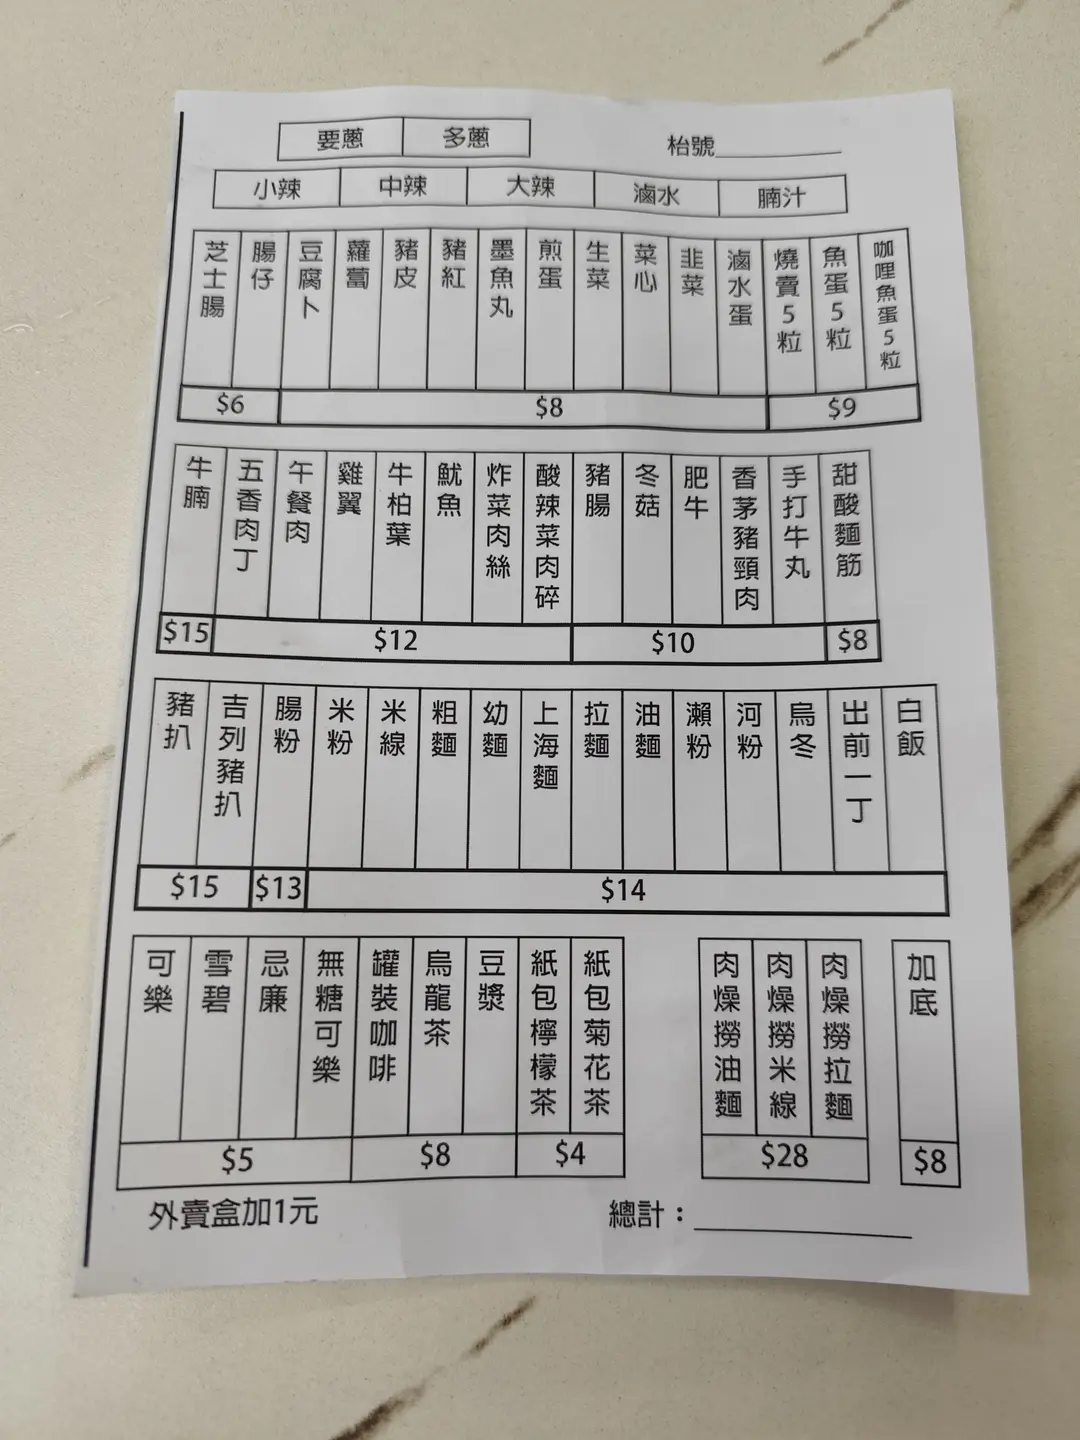 要蔥 多蔥 枱號
小辣 中辣 大辣 滷水 腩汁
芝士腸 腸仔 豆腐卜 蘿蔔 豬皮 豬紅 墨魚丸 煎蛋 生菜 菜心 韭菜 滷水蛋 燒賣5粒 魚蛋5粒 咖哩魚蛋5粒
$6 $8 $9
牛腩 五香肉丁 午餐肉 雞翼 牛柏葉 魷魚 炸菜肉絲 酸辣菜肉碎 豬腸 冬菇 肥牛 香茅豬頸肉 手打牛丸 甜酸麵筋
$15 $12 $10 $8
豬扒 吉列豬扒 腸粉 米粉 米線 粗麵 幼麵 上海麵 拉麵 油麵 瀨粉 河粉 烏冬 出前一丁 白飯
$15 $13 $14
可樂 雪碧 忌廉 無糖可樂 罐裝咖啡 烏龍茶 豆漿 紙包檸檬茶 紙包菊花茶 肉燥撈油麵 肉燥撈米線 肉燥撈拉麵 加底
$5 $8 $4 $28 $8
外賣盒加1元 總計：